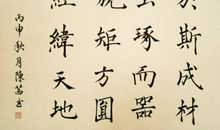 於斯成材
琢而器
矩方圓
經緯天地
丙申秋月陳茁書